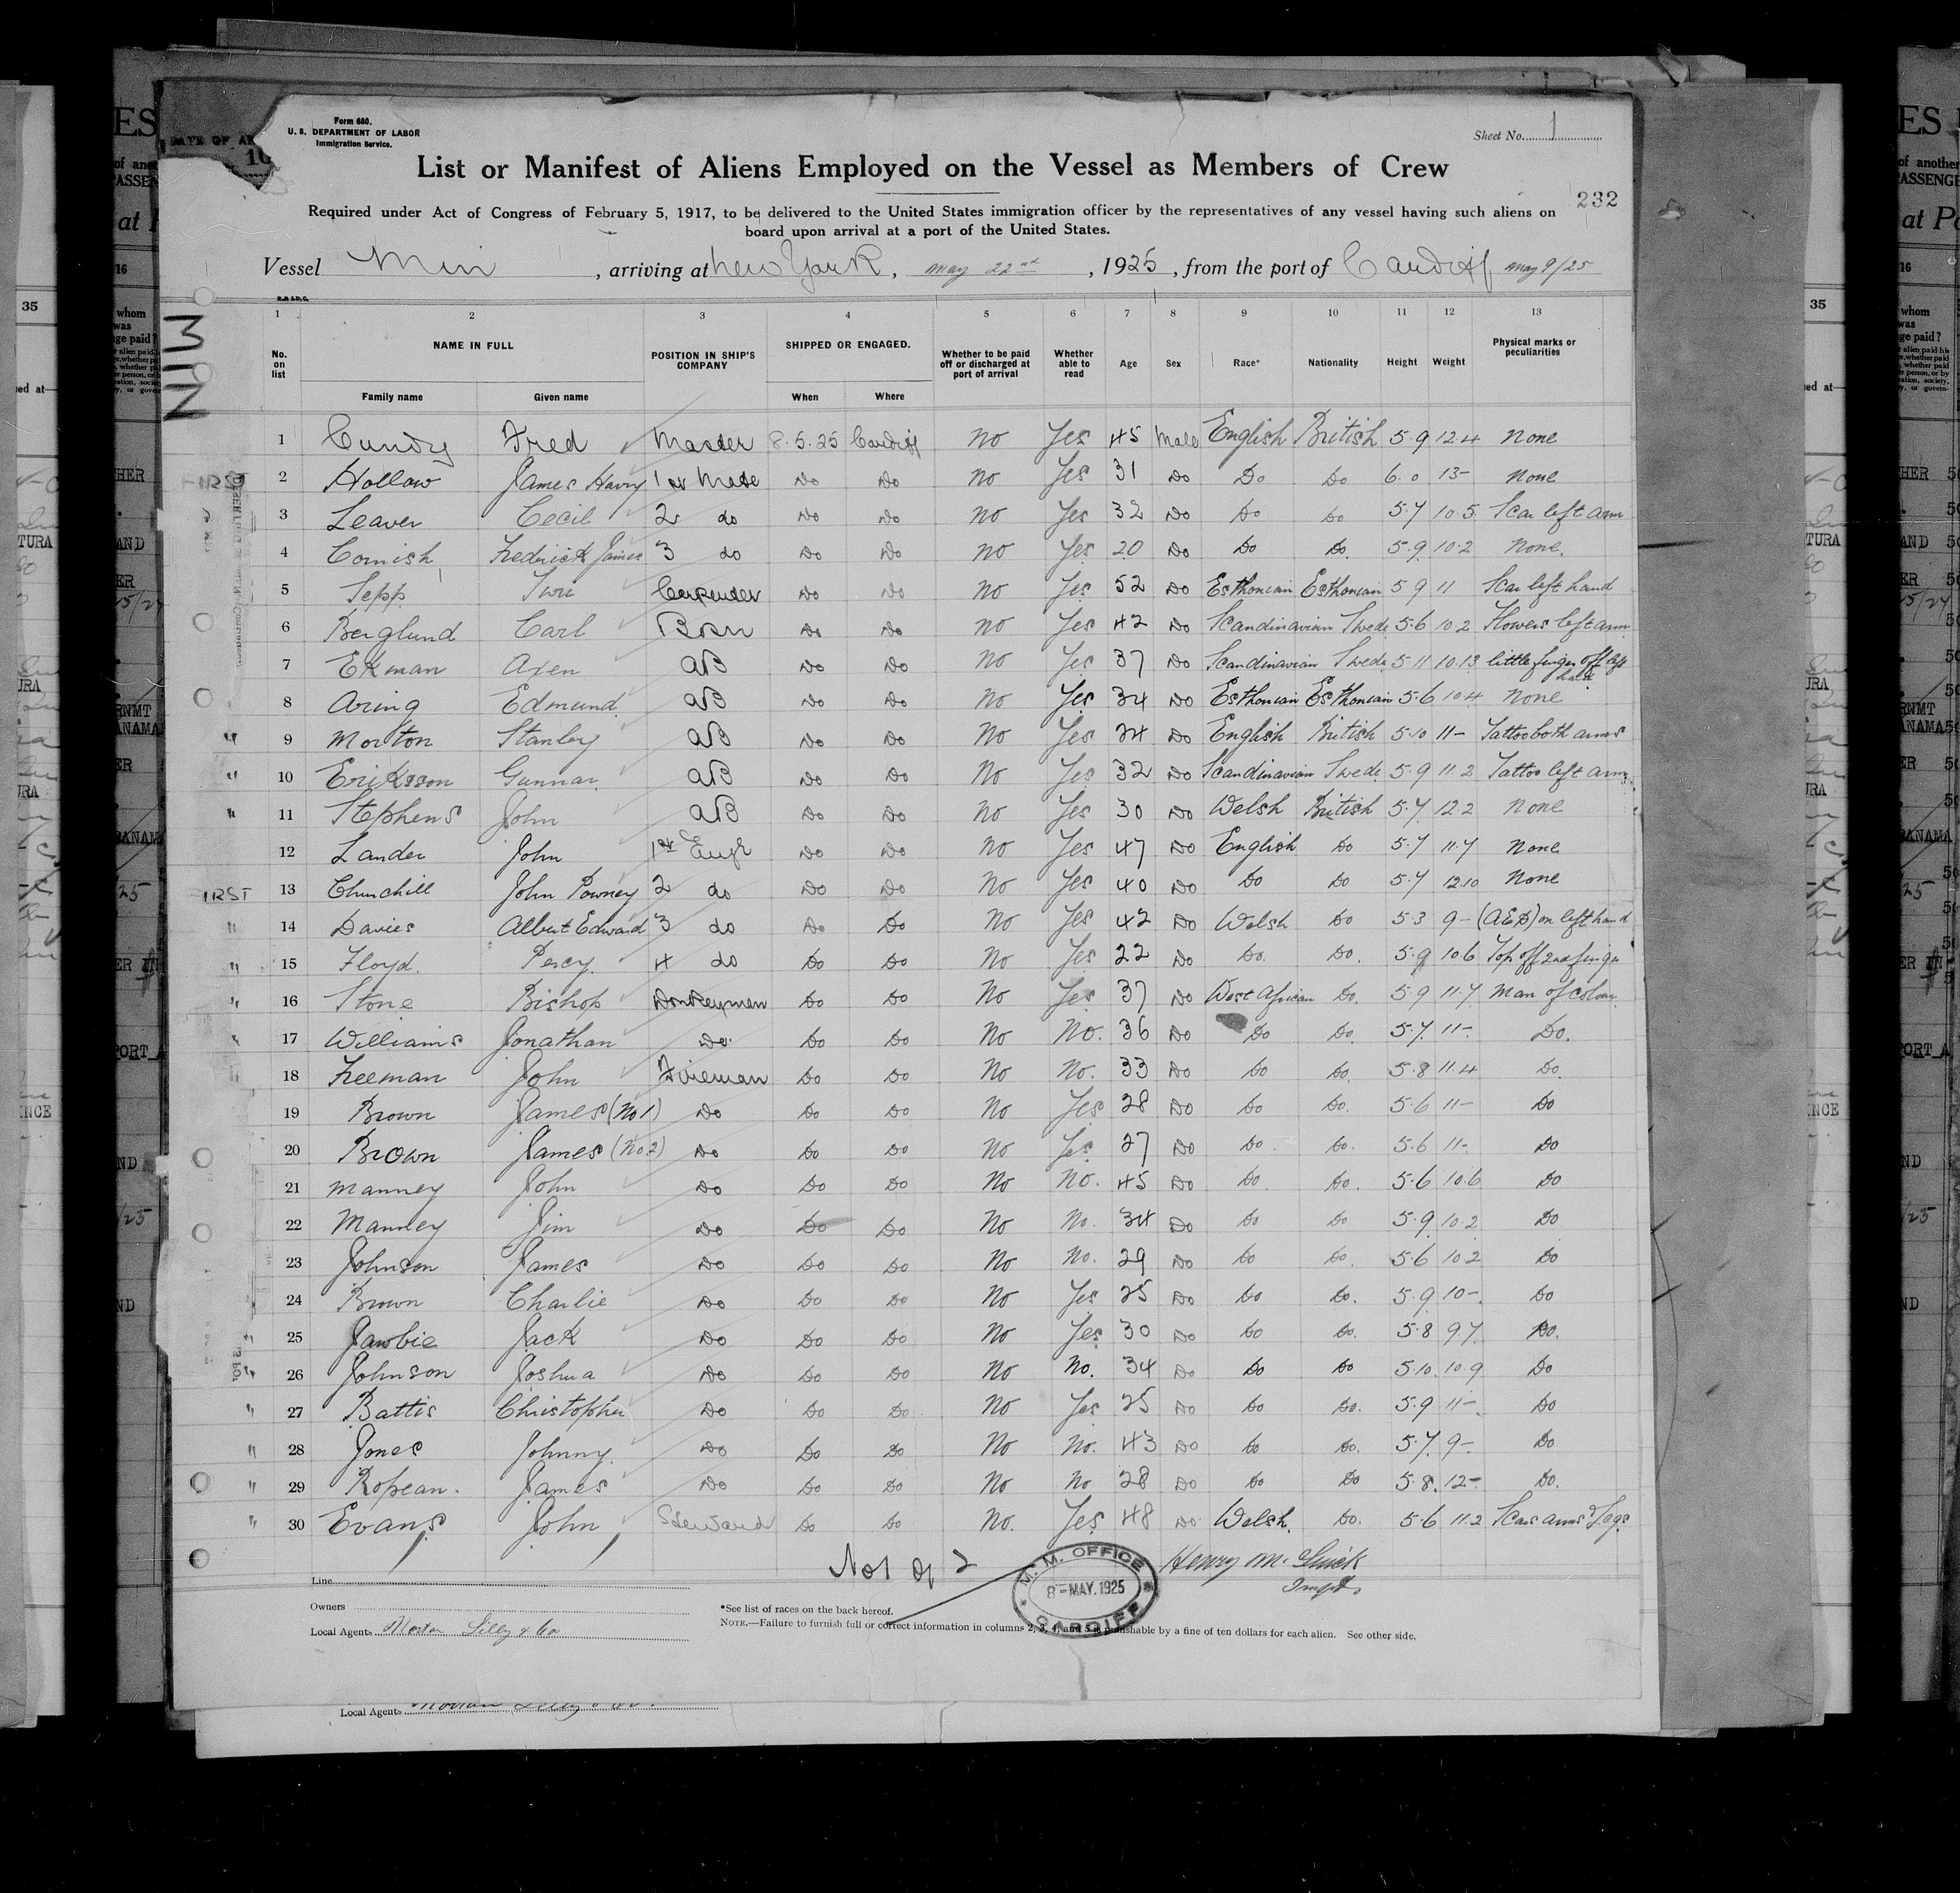 Form 680.
U. S. DEPARTMENT OF LABOR
Immigration Service.
Sheet No. 1
List or Manifest of Aliens Employed on the Vessel as Members of Crew
232
Required under Act of Congress of February 5, 1917, to be delivered to the United States immigration officer by the representatives of any vessel having such aliens on
board upon arrival at a port of the United States.
Vessel Min, arriving at New York, May 22nd, 1925, from the port of Cardiff May 9/25
MIN
1 2 3 4 5 6 7 8 9 10 11 12 13
No. on list NAME IN FULL Family name Given name POSITION IN SHIP'S COMPANY SHIPPED OR ENGAGED. When Where Whether to be paid off or discharged at port of arrival Whether able to read Age Sex Race* Nationality Height Weight Physical marks or peculiarities
1 Cundy Fred Master 8.5.25 Cardiff No Yes 45 Male English British 5.9 12.4 None
2 Hollow James Harry 1st Mate Do Do No Yes 31 Do Do Do 6.0 13- None
3 Leaver Cecil 2 do Do Do No Yes 32 Do Do Do 5.7 10.5 Scar left arm
4 Cornish Frederick James 3 do Do Do No Yes 20 Do Do Do. 5.9 10.2 None.
5 Sepp Carpenter Do Do No Yes 52 Do Esthonian Esthonian 5 9 11 Scar left hand
6 Berglund Carl Bosn Do Do No Yes 42 Do Scandinavian Swede 5.6 10 2 Flowers left arm
7 Ekman Axen AB Do Do No Yes 37 Do Scandinavian Swede 5.11 10.13 little finger off left hand
8 Aring Edmund AB Do Do No Yes 34 Do Esthonian Esthonian 5.6 10 4 None
9 Morton Stanley AB Do Do No Yes 24 Do English British 5.10 11- Tattoo both arms
10 Eriksson Gunnar AB Do Do No Yes 32 Do Scandinavian Swede 5.9 11.2 Tattoo left arm
11 Stephens John AB Do Do No Yes 30 Do Welsh British 5.7 12.2 None
12 Lander John 1st Engr Do Do No Yes 47 Do English Do 5.7 11.7 None
FIRST 13 Churchill John Powney 2 do Do Do No Yes 40 Do Do Do 5.7 12.10 None
14 Davies Albert Edward 3 do Do Do No Yes 42 Do Welsh Do 5.3 9- (AED) on left hand
15 Floyd. Percy 4 do Do Do No Yes 22 Do Do. Do. 5.9 10 6 Top off 2nd finger
16 Stone Bishop Donkeyman Do Do No Yes 37 Do West African Do. 5.9 11.7 Man of colour
17 Williams Jonathan Do. Do Do No No. 36 Do Do Do. 5.7. 11- Do.
18 Freeman John Fireman Do Do No No. 33 Do Do Do. 5.8 11.4 Do.
19 Brown James (No 1) Do Do Do No Yes 28 Do Do Do. 5.6 11- Do
20 Brown James (No 2) Do Do Do No Yes 27 Do Do Do. 5.6 11- Do
21 Manney John Do Do Do No No. 45 Do Do Do. 5.6 10.6 Do
22 Manney Jim Do Do Do No No. 34 Do Do Do 5.9 10.2 Do
23 Johnson James Do Do Do No No. 29 Do Do Do. 5.6 10 2 Do
24 Brown Charlie Do Do Do No Yes 25 Do Do Do. 5.9 10- Do
25 Jawbie Jack Do Do Do No Yes 30 Do Do Do. 5.8 9.7. Do.
26 Johnson Joshua Do Do Do No No. 34 Do Do Do 5.10. 10.9 Do
27 Battis Christopher Do Do Do No Yes 25 Do Do Do. 5.9 11- Do
28 Jones Johnny. Do Do Do No No. 43 Do Do Do. 5.7. 9- Do
29 Ropean. James Do Do Do No No 28 Do Do Do 5.8. 12- Do.
30 Evans John Steward Do Do No. Yes 48 Do Welsh. Do. 5.6 11.2 Scars arms & Legs
No 1 of 2
M. M. OFFICE
8-MAY.1925
CARDIFF
Line
Owners
Local Agents
*See list of races on the back hereof.
NOTE.—Failure to furnish full or correct information in columns 2, 3, 4, and 5 is punishable by a fine of ten dollars for each alien. See other side.
Local Agents